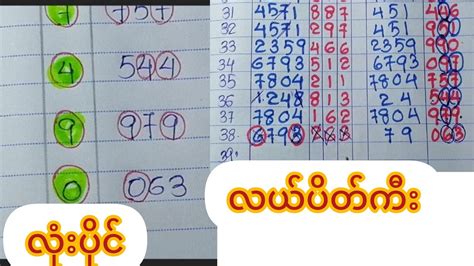 7 757
4 544
9 979
0 063
လုံးပိုင်
31 4571 887 451 406
32 4571 297 451 951
33 2359 466 2359 990
34 6793 512 6793 097
35 7804 211 7804 757
36 1248 813 24 544
37 7804 162 7804 979
38. 6793 79 063
39.
လယ်ပိတ်ကီး